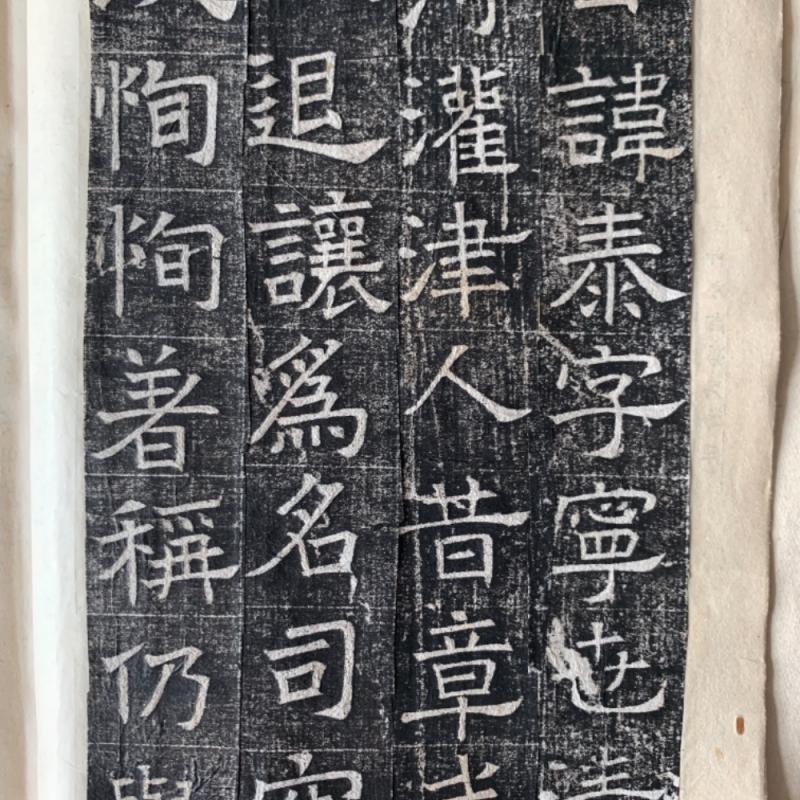 諱泰字寧世
灌津人昔章
退讓爲名司
恂恂著稱仍